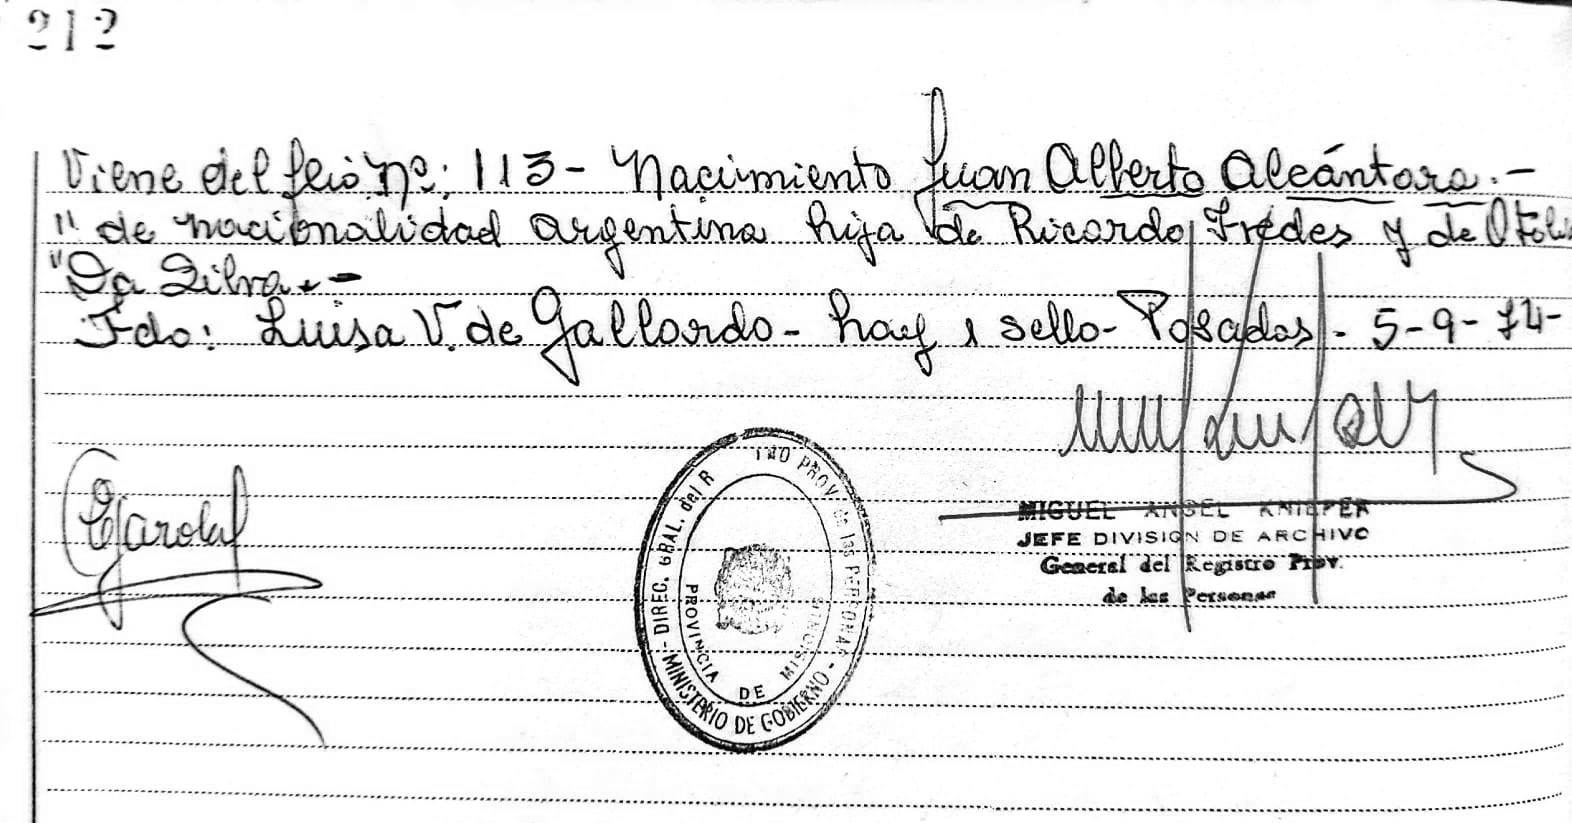 212
Viene del folio nº: 113 - Nacimiento Juan Alberto Alcántara.-
" de nacionalidad argentina hija de Ricardo Fredes y de Otoli
" Da Silva.-
Fdo: Luisa V. de Gallardo - hay 1 sello - Posadas - 5-9-74-
MIGUEL ANGEL KNIEPER
JEFE DIVISION DE ARCHIVO
General del Registro Prov.
de las Personas
DIREC. GRAL. del R TRO PROV. de las PERSONAS
- MINISTERIO DE GOBIERNO -
PROVINCIA DE MISIONES